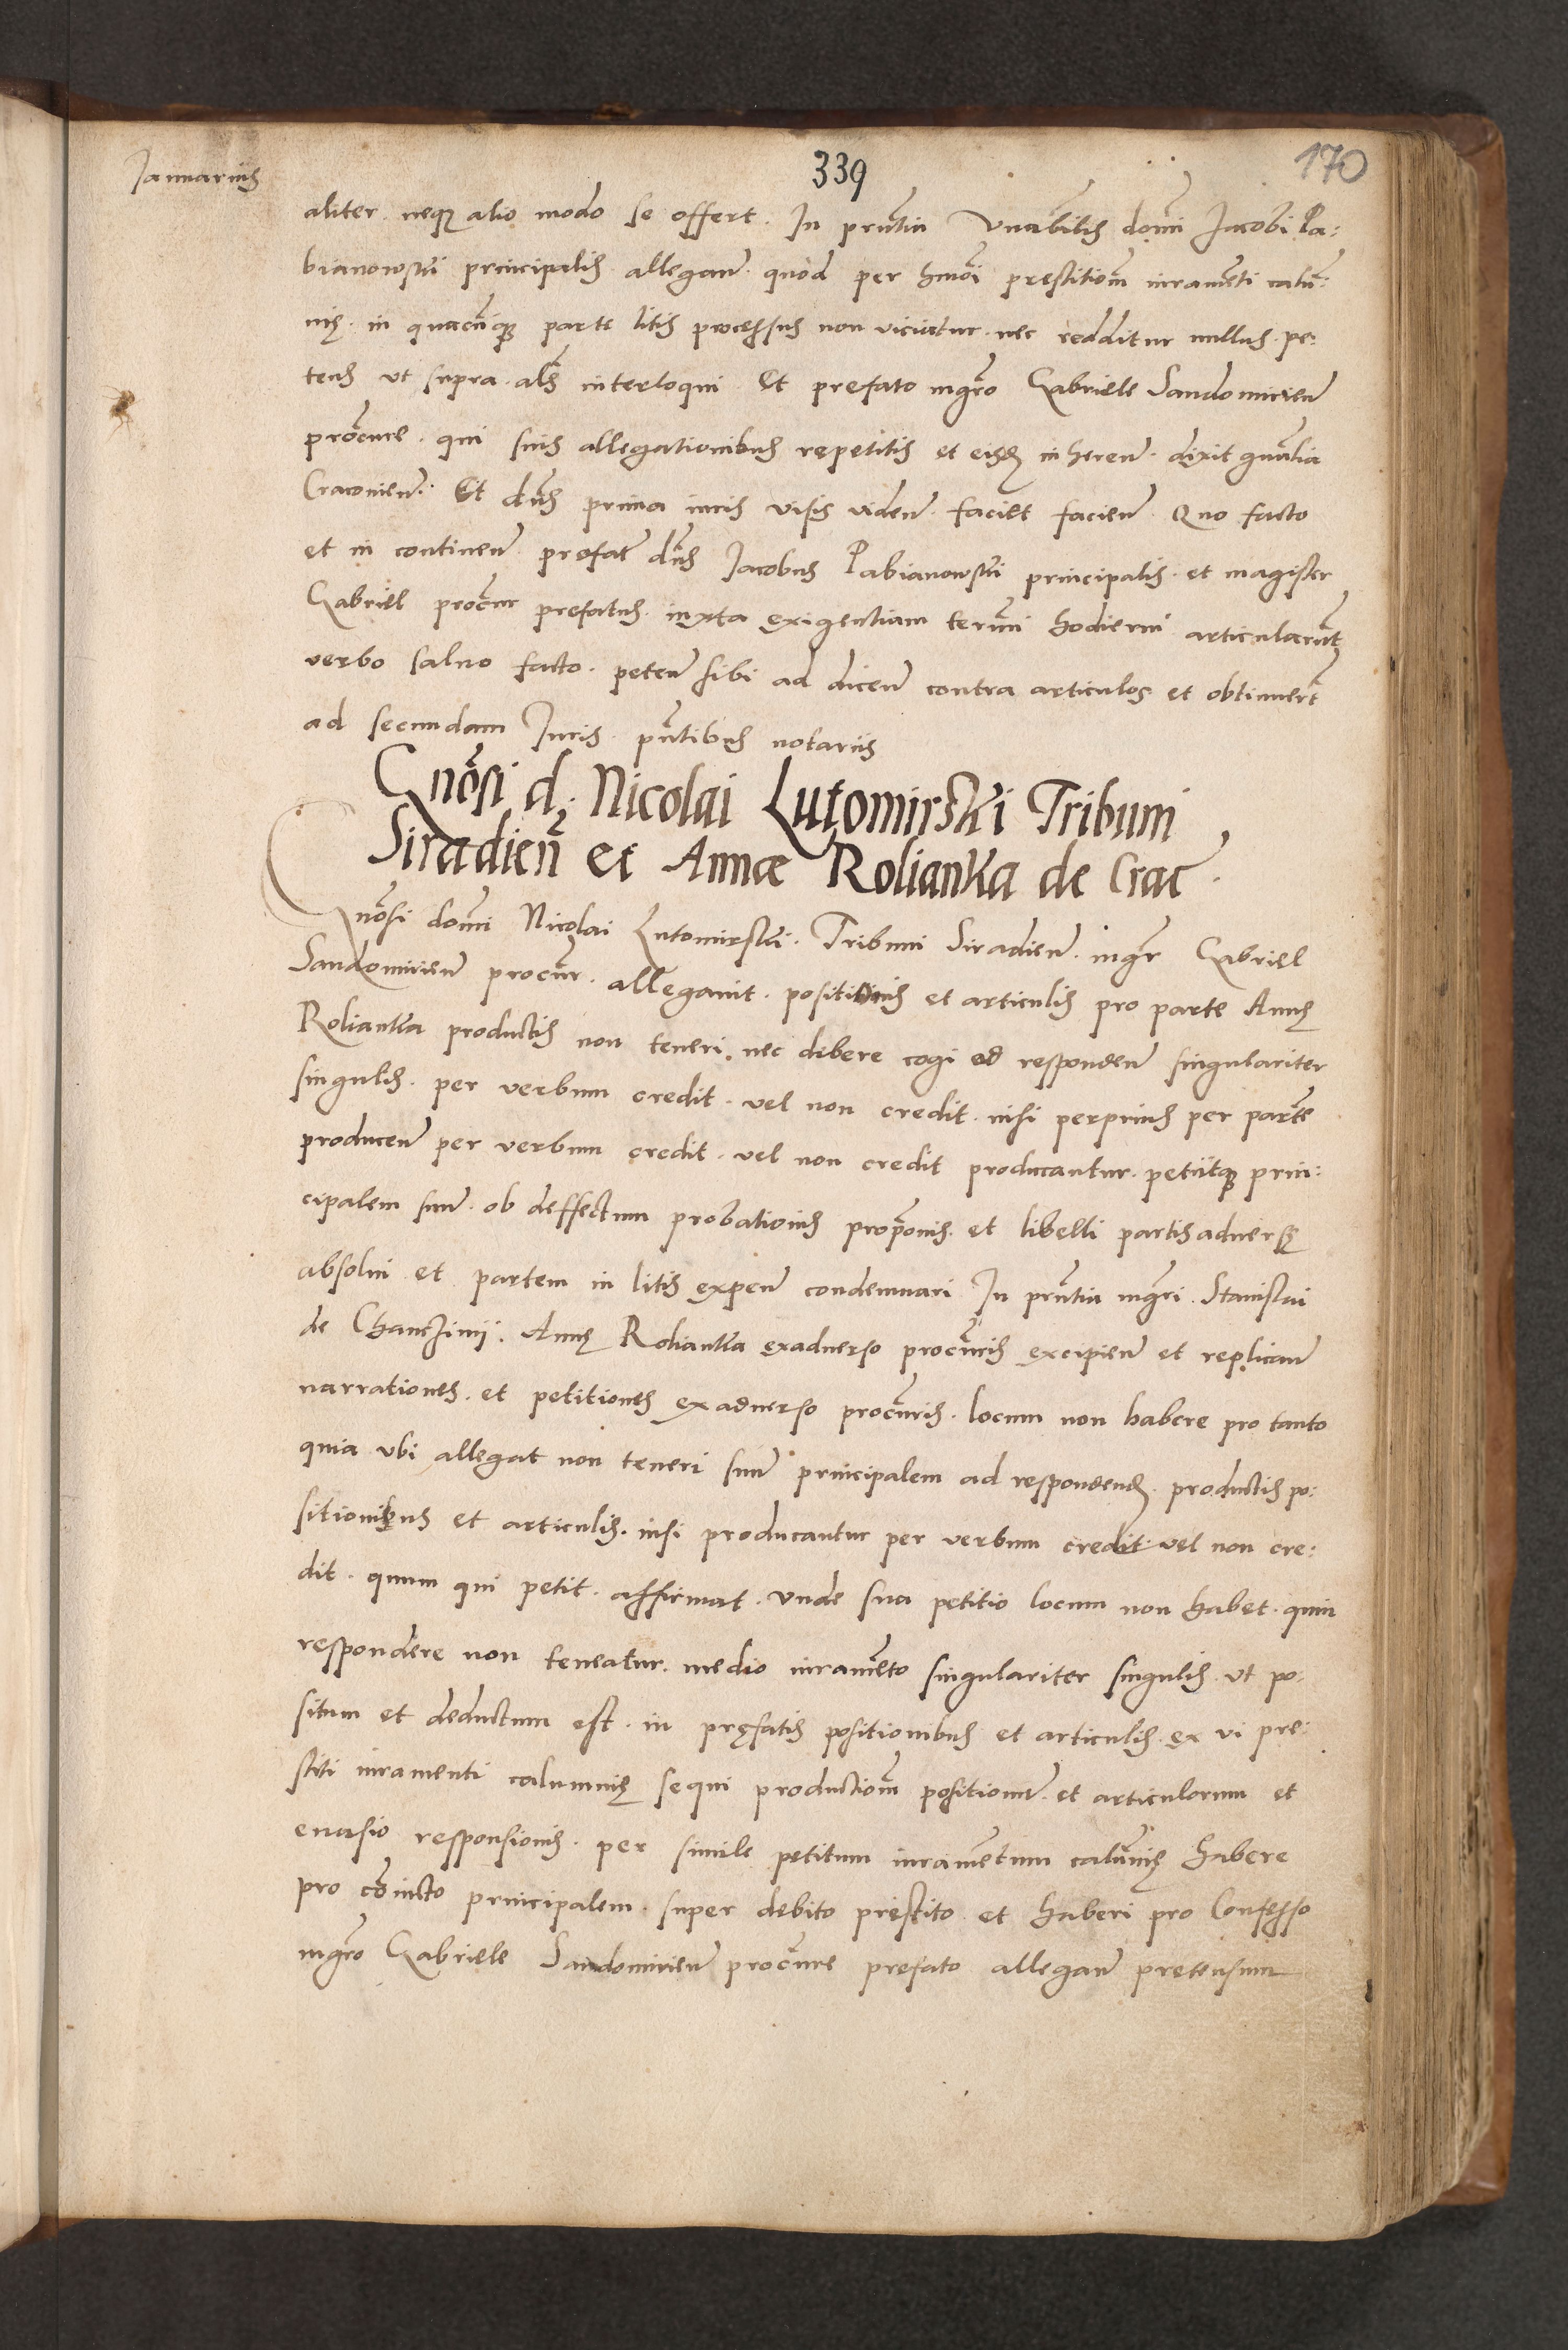 Januarius
339
170
aliter neq3 alio modo se offert. In pñtia Vnabilis domĩ Jacobi Pa:
bianowski principalis allegañ. quod per hmoi prestitiom iuramenti calũ:
nię. in quacũq3 parte litis processus non viciatur. nec redditur nullus. pe:
tens vt supra. als interloqui Et prefato mgro Gabriele Sandomirieñ
procure. qui suis allegationibus repetitis et eisd inhereñ. dixit
Cracovieñ. Et dñs prima iuris visis videñ. faciet facieñ Quo facto
et in contineñ prefat dñs Jacobus Pabianowski principalis. et magister
Gabriel procur prefatus. iuxta exigentiam termi hodierni articularũt
verbo saluo facto. peteñ sibi ad diceñ contra articulos et obtinuert
ad secundam Juris. pñtibus notariis
Gnosi d. Nicolai Lutomirski Tribuni
Siradieñ et Annæ Rolianka de Crac.
Gnosi domĩ Nicolai Lutomirski. Tribuni Siradieñ. mgr Gabriel
Sandomirieñ procur. allegauit. positionis et articulis pro parte Annę
Rolianka productis non teneri. nec debere cogi ad respondeñ singulariter
singulis. per verbum credit. vel non credit. nisi perprius per parte
produceñ per verbum credit. vel non credit producantur. petiitq3 prin:
cipalem suũ. ob deffectum probationis proponis. et libelli partis aduersę
absolui et partem in litis expeñ condemnari In pñtia mgri. Stanislai
de Chanczinij. Annę Rolianka exaduerso procuris excipieñ et replicañ
narrationes. et petitiones exaduerso procuris. locum non habere pro tanto
quia vbi allegat non teneri suũ principalem ad respondend. productis po:
sitionibus et articulis. nisi producantur per verbum credit. vel non cre:
dit. quum qui petit. affirmat. vnde sua petitio locum non habet. quin
respondere non teneatur. medio iurameto singulariter singulis. vt po:
situm et deductum est. in pręfatis positionibus et articulis. ex vi pre:
stiti iuramenti calumnię sequi productiom positionũ. et articulorum et
euasio responsionis. per simile petitum iurametum calũnię habere
pro cõuicto principalem. super debito prestito et haberi pro Confesso
mgro Gabriele Sandomirieñ procure prefato allegañ pretensum